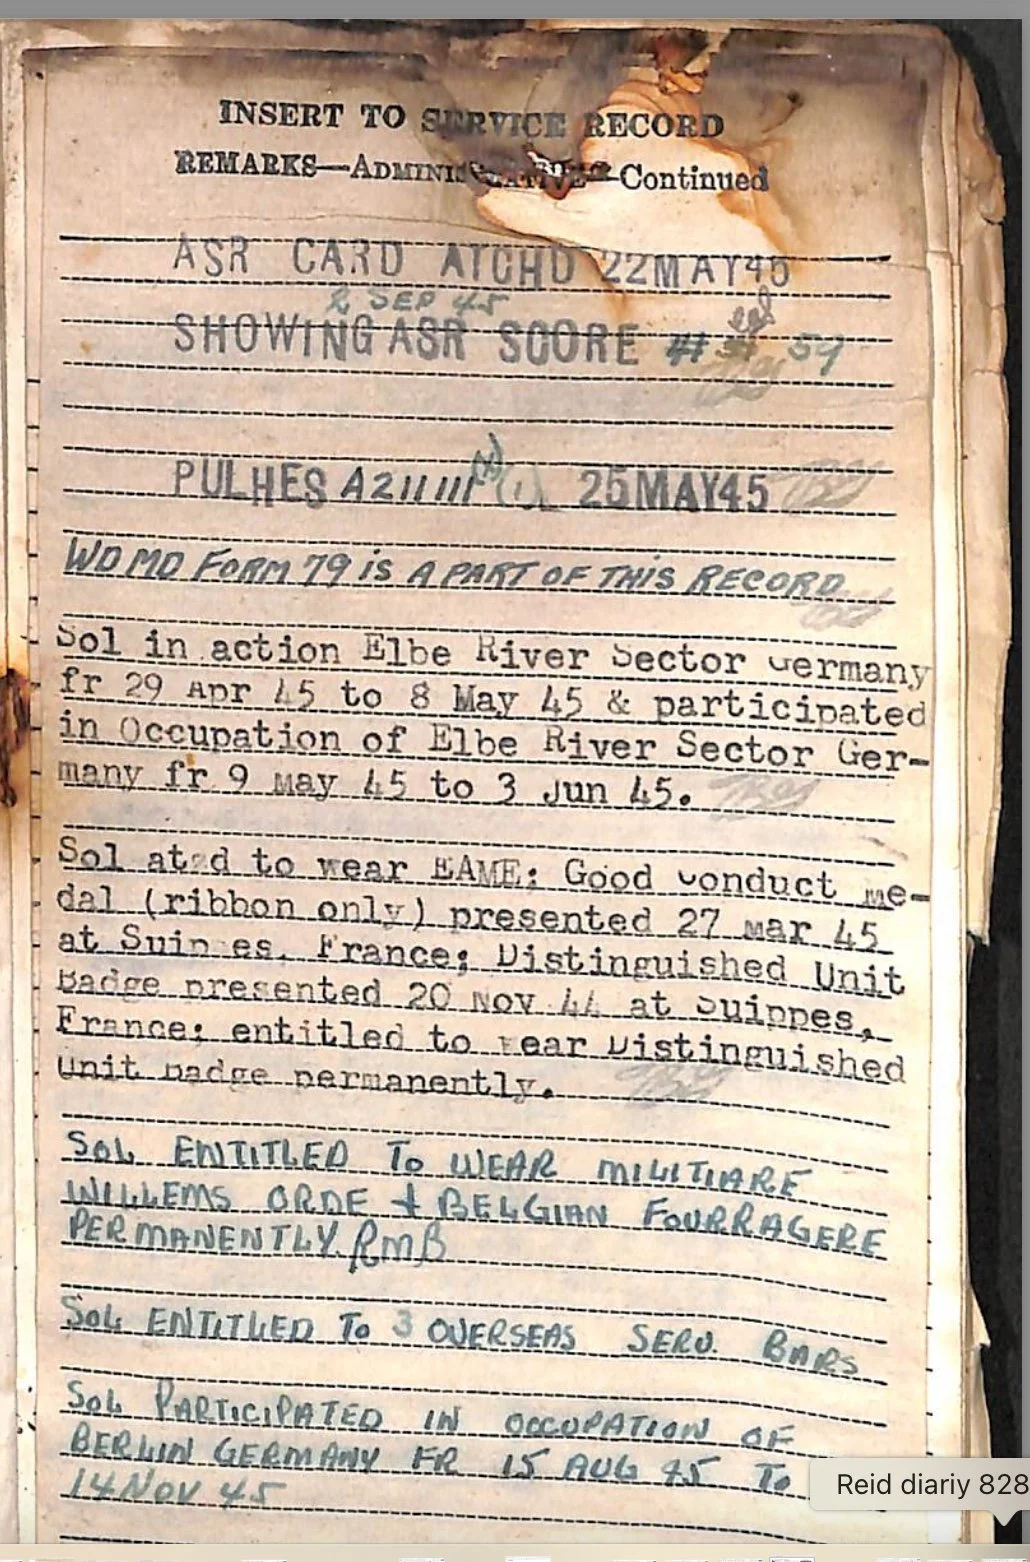 INSERT TO SERVICE RECORD
REMARKS—ADMINISTRATIVE—Continued
ASR CARD ATCHD 22MAY45
2 SEP 45
SHOWING ASR SCORE 59
PULHES A211111 25MAY45
WD MD FORM 79 IS A PART OF THIS RECORD
Sol in action Elbe River Sector Germany
fr 29 Apr 45 to 8 May 45 & participated
in Occupation of Elbe River Sector Ger-
many fr 9 May 45 to 3 Jun 45.
Sol atzd to wear EAME; Good Conduct Me-
dal (ribbon only) presented 27 Mar 45
at Suippes, France; Distinguished Unit
Badge presented 20 Nov 44 at Suippes,
France; entitled to wear Distinguished
Unit Badge permanently.
SOL ENTITLED TO WEAR MILITIARE
WILLEMS ORDE + BELGIAN FOURRAGERE
PERMANENTLY. RMB
SOL ENTITLED TO 3 OVERSEAS SERV. BARS
SOL PARTICIPATED IN OCCUPATION OF
BERLIN GERMANY FR 15 AUG 45 TO
14 NOV 45
Reid diariy 828